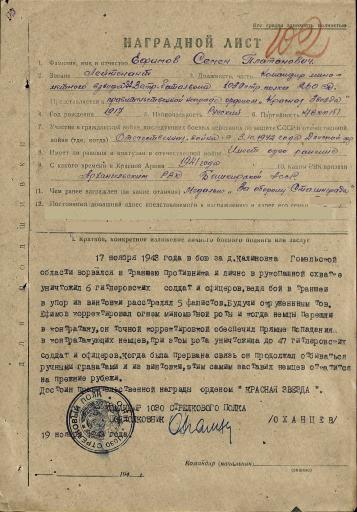 Все графы заполнять полностью
102
НАГРАДНОЙ ЛИСТ
1. Фамилия, имя и отчество Ефимов Семен Платонович.
2. Звание Лейтенант 3. Должность, часть Командир мино-
метного взвода 1030 стр. полка 260 СД.
Представляется к правительственной награде орденом „Красная Звезда“
4. Год рождения 1917 5. Национальность Русский 6. Партийность
7. Участие в гражданской войне, последующих боевых действиях по защите СССР и отечественной
войне (где, когда) Отечественной войны с 1942 года
8. Имеет ли ранения и контузии в отечественной войне Имеет одно ранение
9. С какого времени в Красной Армии 1941 года 10. Каким РВК призван
Архангельским РВК Башкирской АССР
11. Чем ранее награжден (за какие отличия) Медалью „За оборону Сталинграда“
12. Постоянный домашний адрес представляемого к награждению и адрес его семьи
I. Краткое, конкретное изложение личного боевого подвига или заслуг
17 ноября 1943 года в бою за д.Калиновка Гомельской
области ворвался в траншею противника и лично в рукопашной схватке
уничтожил 6 гитлеровских солдат и офицеров, ведя бой в траншее
в упор из винтовки расстрелял 5 фашистов. Будучи окруженным тов.
Ефимов корректировал огнем минометной роты и когда немцы перешли
в контратаку, он точной корректировкой обеспечил прямые попадания
в контратакующих немцев, при этом рота уничтожила до 47 гитлеровских
солдат и офицеров. Когда была прервана связь он продолжал отбиваться
ручными гранатами и из винтовки, этим самым заставил немцев откатится
на прежние рубежи.
Достоин правительственной награды орденом "КРАСНАЯ ЗВЕЗДА".
КОМАНДИР 1030 СТРЕЛКОВОГО ПОЛКА
ПОДПОЛКОВНИК /ОХАНЦЕВ/
19 ноября 1943 года.
Командир (начальник)
194